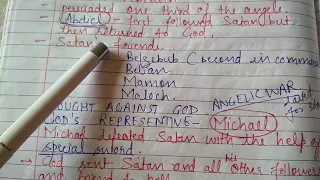 persuaded one third of the angels.
(Abdiel) - first followed Satan but
then returned to God.
- Satan's friends
Belzebub (second in comman
Belian
Mamon
Moloch.
ANGELIC WAR
FOUGHT AGAINST GOD
GOD'S REPRESENTIVE - Michael
Michael defeated Satan with the help of
special sword.
- God sent Satan and all other follower
hell